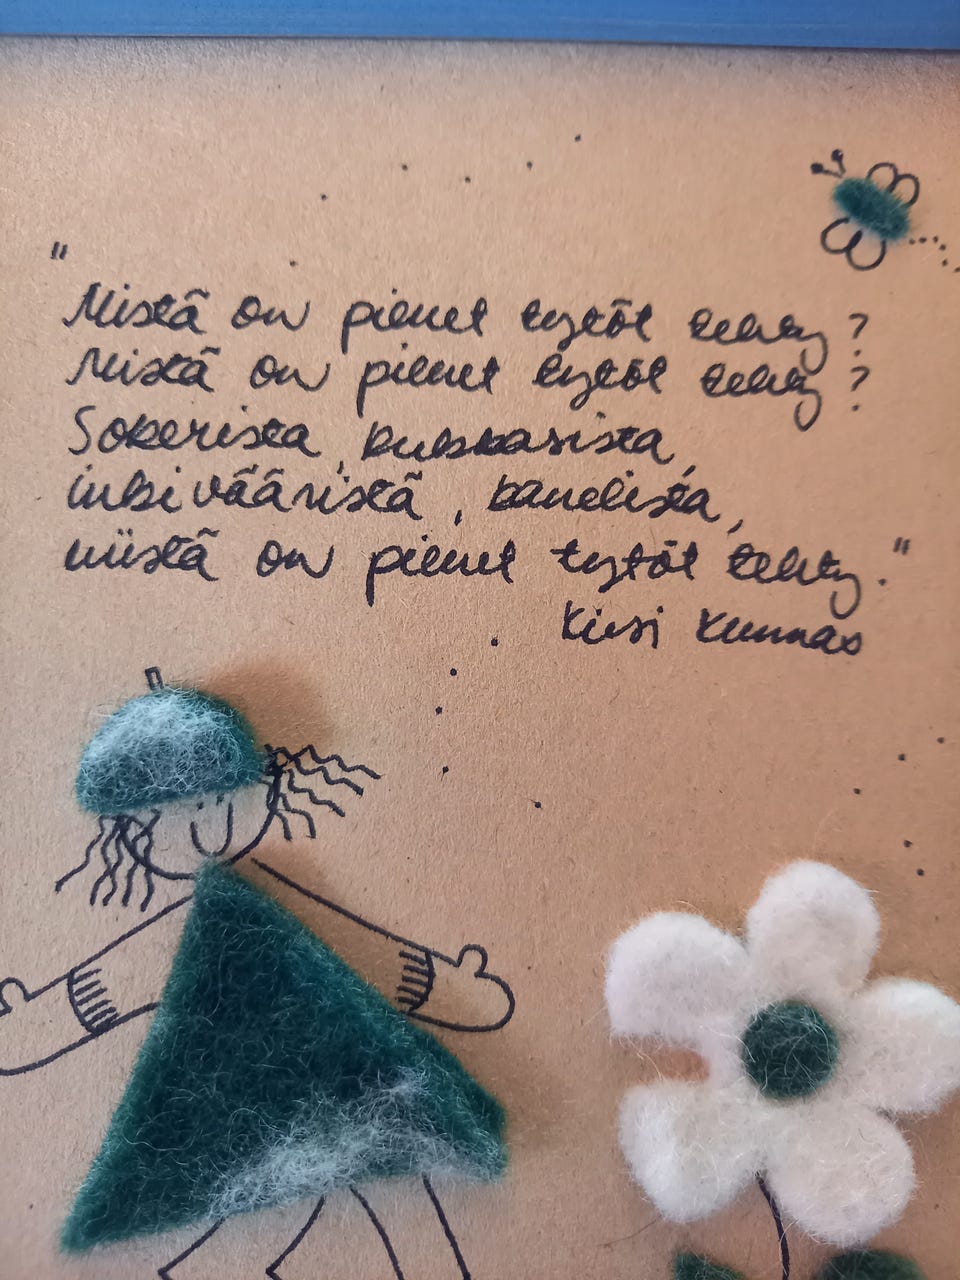 "
Mistä on pienet tytöt tehty?
Mistä on pienet tytöt tehty?
Sokerista, kukkasista,
inkivääristä, kanelista,
niistä on pienet tytöt tehty."
Kirsi Kunnas